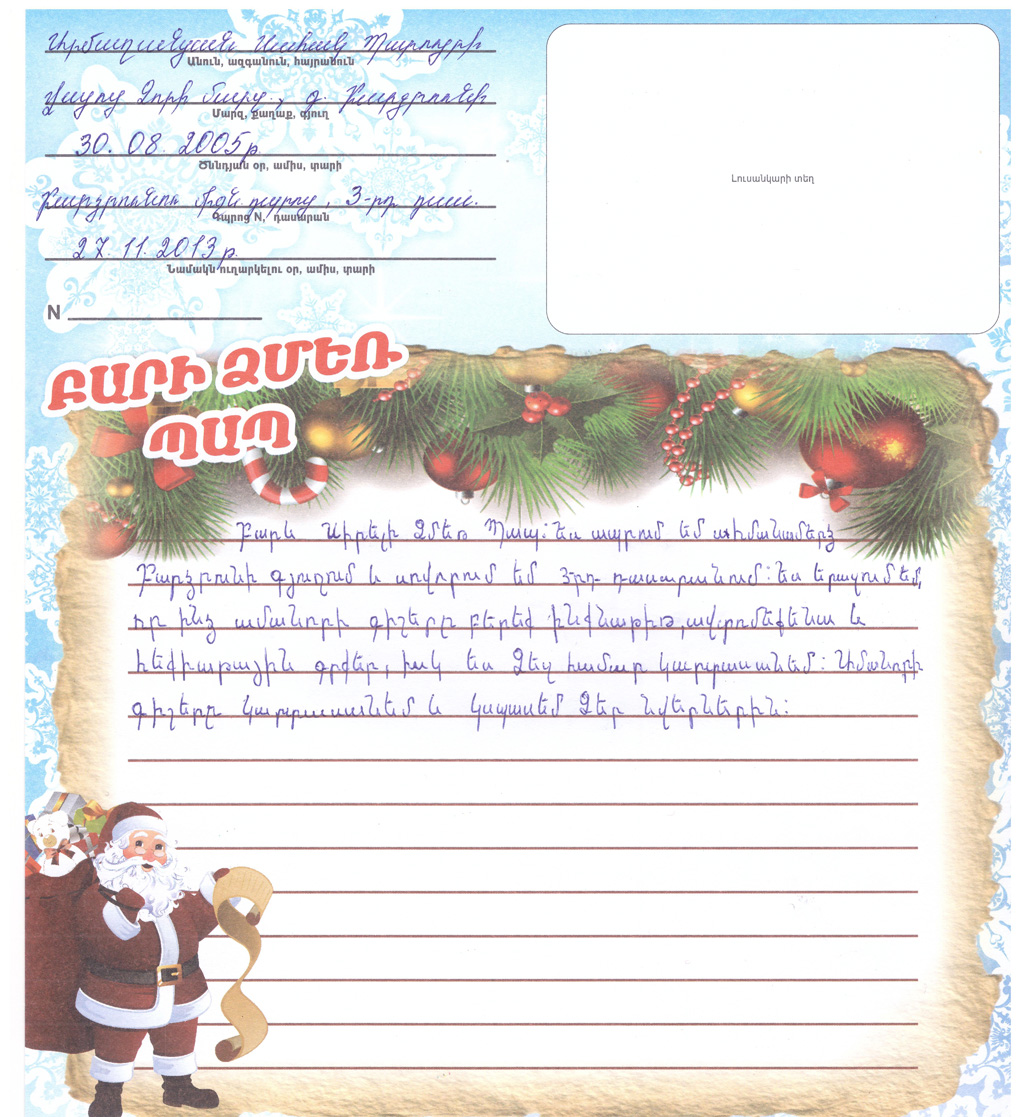 Սիմաղանցյան Սահակ Պարույրի
Անուն, ազգանուն, հայրանուն
Վայոց Ձորի մարզ, գ. Բարձրունի
Մարզ, քաղաք, գյուղ
30. 08. 2005թ
Ծննդյան օր, ամիս, տարի
Բարձրունու միջն դպրոց, 3-րդ դաս.
Դպրոց N, դասարան
27. 11. 2013թ.
Նամակն ուղարկելու օր, ամիս, տարի
N
Լուսանկարի տեղ
ԲԱՐԻ ՁՄԵՌ
ՊԱՊ
Բարև Սիրելի Ձմեռ Պապ: Ես ապրում եմ սահմանամերձ
Բարձրունի գյուղում և սովորում եմ 3-րդ դասարանում: Ես երազում եմ,
որ ինձ ամանորի գիշերը բերեք ինքնաթիռ, ավտոմեքենա և
հեքիաթային գրքեր, իսկ ես Ձեզ համար կարտասանեմ: Ամանորի
գիշերը կարտասանեմ և կսպասեմ Ձեր նվերներին: